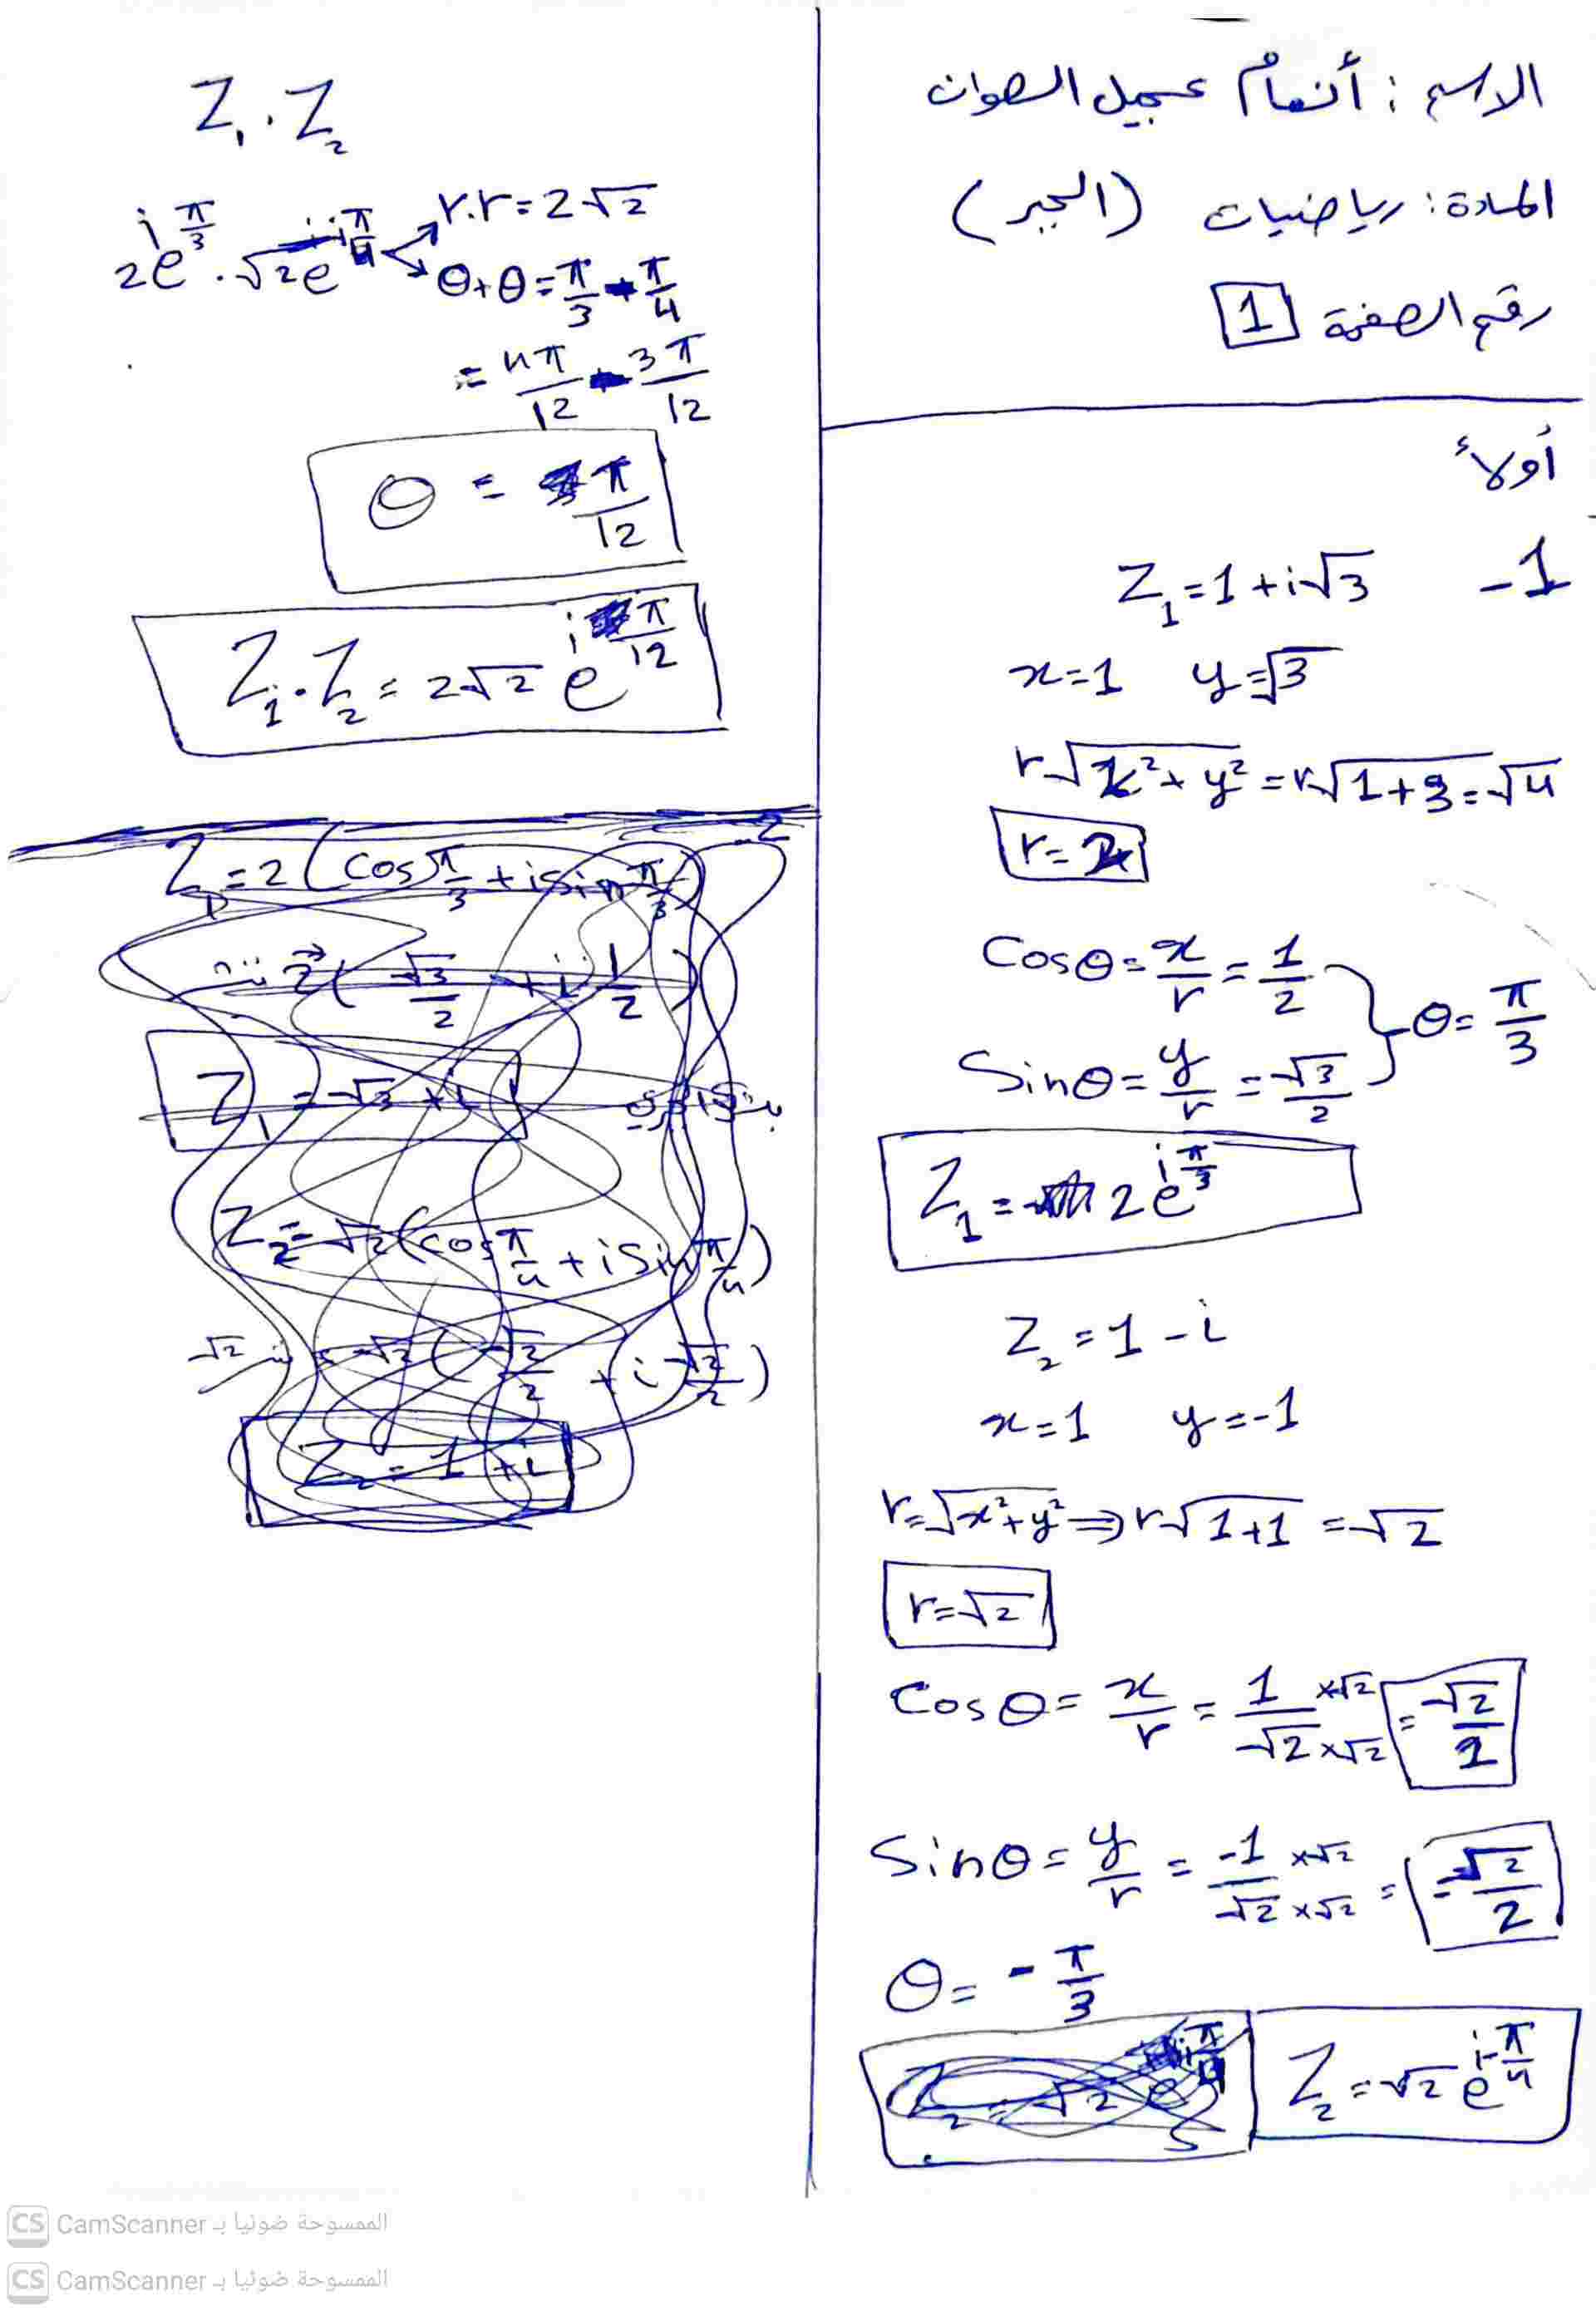 الاسم : أنعام عجيل الصوان
المادة: رياضيات (الجبر)
رقم الصفحة 1
أولاً
1-
Z₁ = 1 + i√3
x=1 y=√3
r√x²+y² = r√1+3 = √4
r = 2
Cosθ = x/r = 1/2
Sinθ = y/r = √3/2
θ = π/3
Z₁ = 2e^iπ/3
Z₂ = 1 - i
x=1 y=-1
r=√x²+y² ⇒ r√1+1 = √2
r=√2
Cosθ = x/r = 1×√2/√2×√2 = √2/2
Sinθ = y/r = -1×√2/√2×√2 = -√2/2
θ = -π/3
Z₂ = √2 e^i-π/4
Z₁ . Z₂
2e^iπ/3 . √2e^-iπ/4
r.r = 2√2
θ+θ = π/3 - π/4
= 4π/12 - 3π/12
θ = π/12
Z₁.Z₂ = 2√2 e^iπ/12
Z₁ = 2(cos π/3 + i sin π/3)
(√3/2 + i 1/2)
Z₁ = √3 + i
Z₂ = √2(cos π/4 + i Sin π/4)
√2(√2/2 + i √2/2)
Z₂ = 1 + i
الممسوحة ضوئيا بـ CamScanner
الممسوحة ضوئيا بـ CamScanner